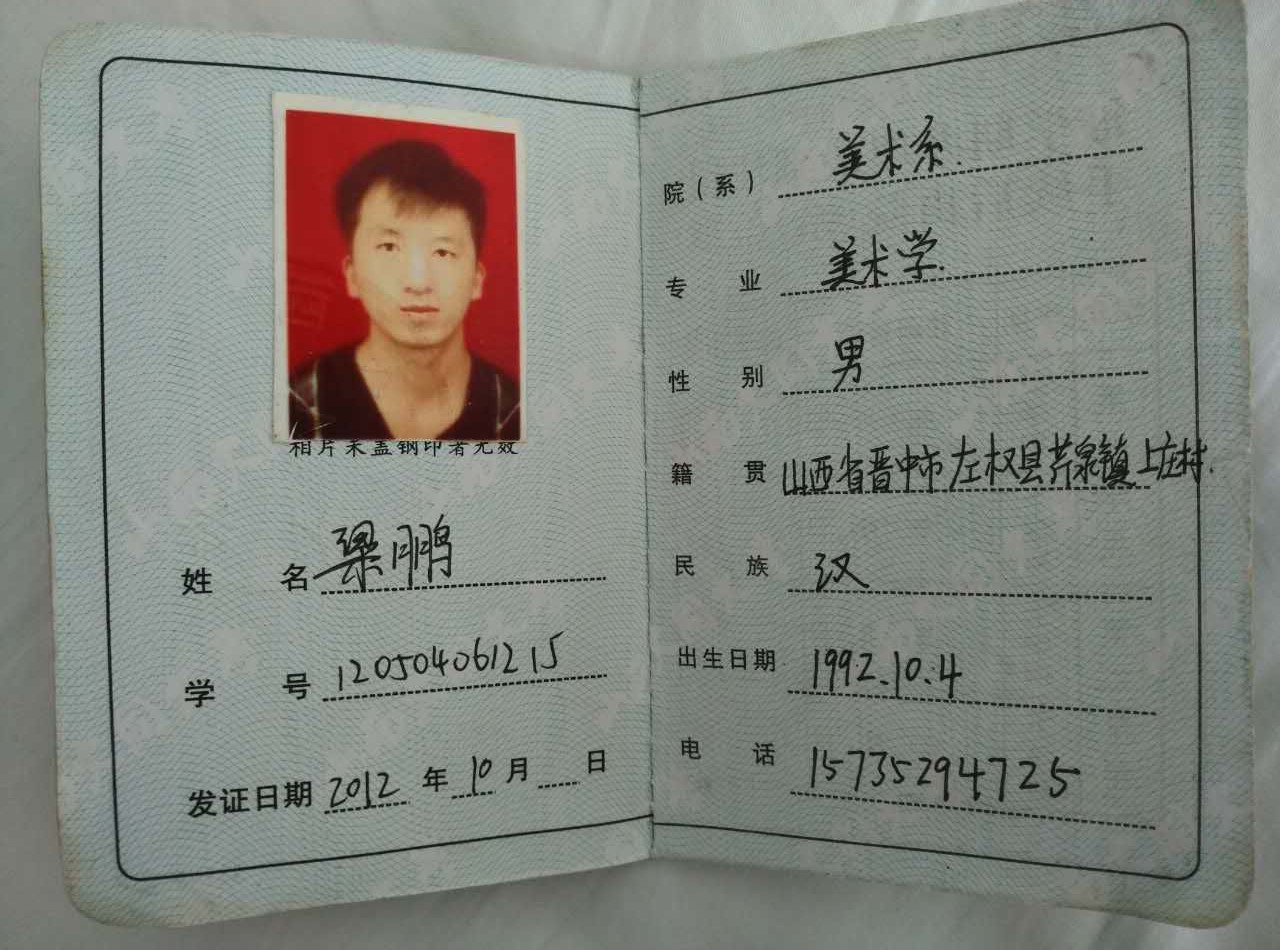 相片未盖钢印者无效
姓 名 梁鹏
学 号 120504061215
发证日期 2012 年 10 月 日
院(系) 美术系.
专 业 美术学.
性 别 男
籍 贯 山西省晋中市左权县芹泉镇上庄村.
民 族 汉
出生日期 1992.10.4
电 话 15735294725